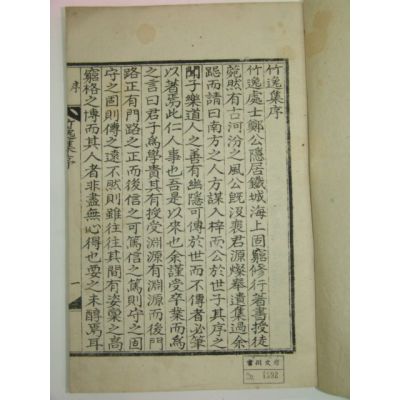 竹逸集序
竹逸處士鄭公隱居鐵城海上固窮修行著書授徒
菀然有古河汾之風公旣沒裒君源燦奉遺集過余
跽而請曰南方之人方謀入梓而公於世子其序之
聞子樂道人之善有幽隱可傳於世而不傳者必筆
以著焉此仁人事也吾是以來也余謹受卒業而爲
之言曰君子爲學貴其有授受淵源有淵源而後門
路正有門路之正而後信之可篤信之篤則守之固
守之固則傳之遠不然則雖往往其間有姿稟之高
窮格之博而其人者非盡無心得也要之未醇焉耳
序
竹逸集序
一
1592